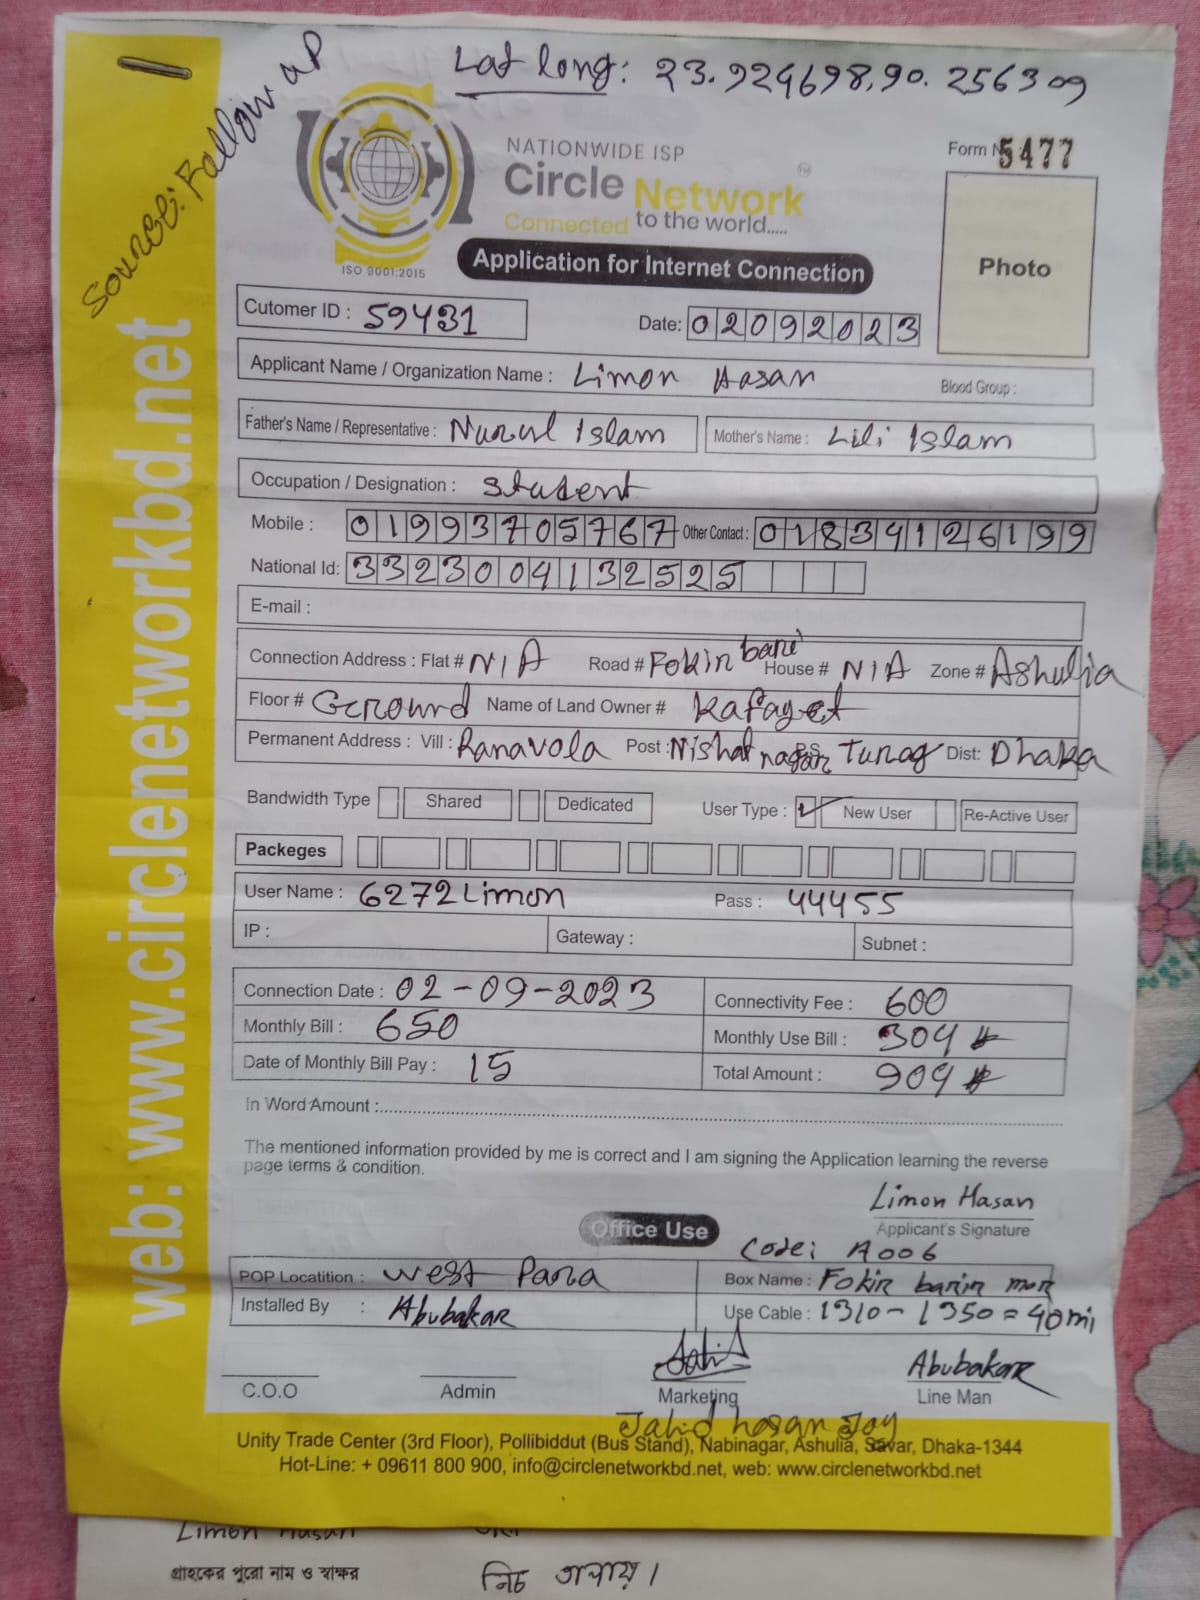 Lat long: 23.924698,90.256309
Source: Follow up
NATIONWIDE ISP
Circle Network
Connected to the world.....
ISO 9001:2015
Form N 5477
Photo
Application for Internet Connection
Cutomer ID : 59431
Date: 02092023
Applicant Name / Organization Name : Limon Hasan Blood Group :
Father's Name / Representative : Nurul Islam Mother's Name : Lili Islam
Occupation / Designation : Student
Mobile : 01993705767 Other Contact : 01834126199
National Id: 3323004132525
E-mail :
Connection Address : Flat # N/A Road # Fokir bari House # N/A Zone # Ashulia
Floor # Ground Name of Land Owner # Kafayet
Permanent Address : Vill : Ranavola Post : Nishat nagar P.S Turag Dist: Dhaka
Bandwidth Type Shared Dedicated User Type : New User Re-Active User
Packeges
User Name : 6272Limon Pass : 44455
IP : Gateway : Subnet :
Connection Date : 02-09-2023 Connectivity Fee : 600
Monthly Bill : 650 Monthly Use Bill : 304
Date of Monthly Bill Pay : 15 Total Amount : 904
In Word Amount :
The mentioned information provided by me is correct and I am signing the Application learning the reverse
page terms & condition.
Limon Hasan
Applicant's Signature
Office Use
Code: A006
POP Locatition : West Para Box Name : Fokir barir mor
Installed By : Abubakar Use Cable : 1310-1350=40mi
Abubakar
C.O.O Admin Marketing Line Man
Jahid hasan Joy
Unity Trade Center (3rd Floor), Pollibiddut (Bus Stand), Nabinagar, Ashulia, Savar, Dhaka-1344
Hot-Line: + 09611 800 900, info@circlenetworkbd.net, web: www.circlenetworkbd.net
web: www.circlenetworkbd.net
Limon Hasan
গ্রাহকের পুরো নাম ও স্বাক্ষর